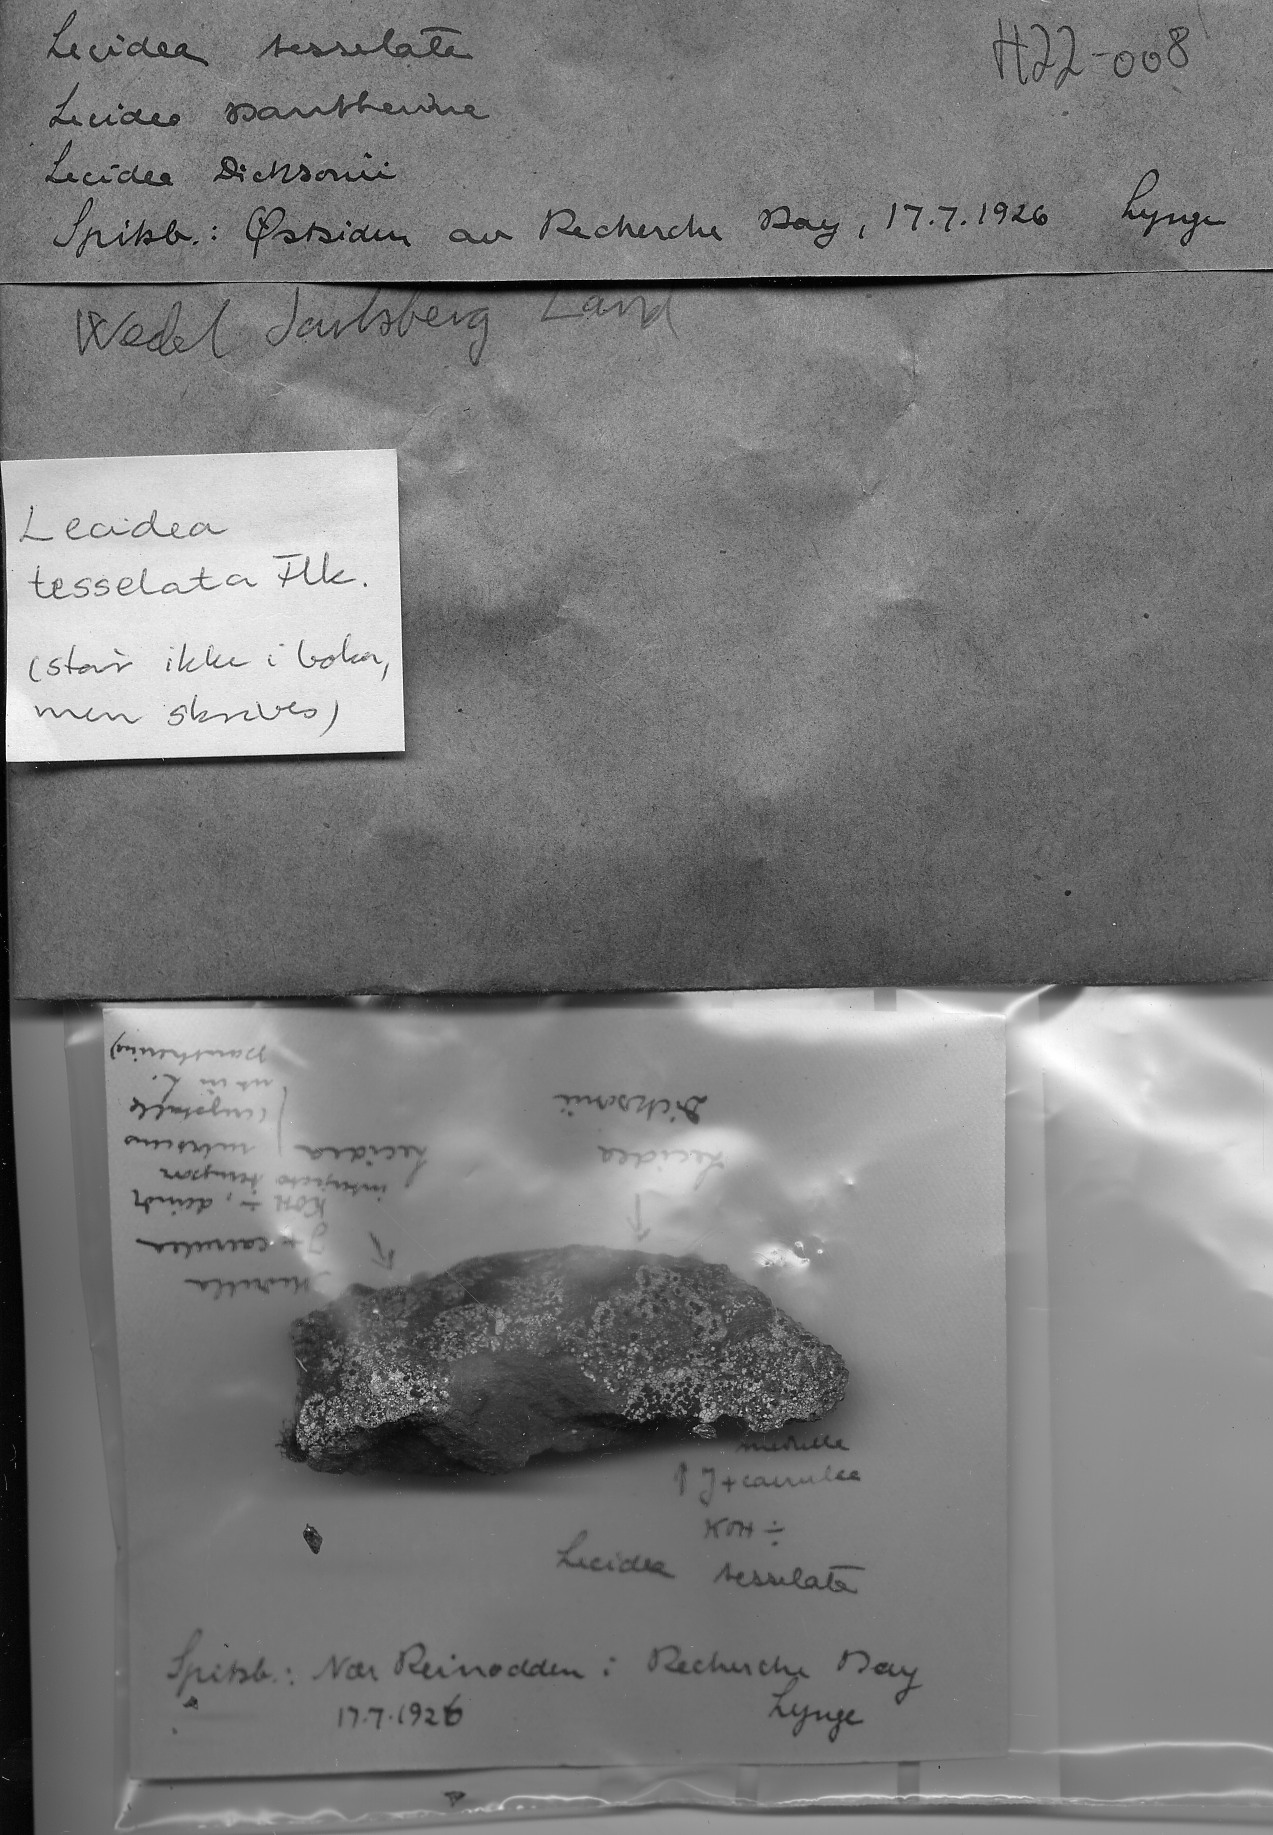 Lecidea tesselata
H22-008
Lecidea pantherina
Lecidea Dicksonii
Spitsb.: Østsiden av Recherche Bay, 17.7.1926 Lynge
Wedel Jarlsberg Land
Lecidea
tesselata Flk.
(står ikke i boka,
men skrives)
Medulla
J+ caerulea
KOH ÷, deinde
Lecidea
pantherina)
Lecidea
Dicksonii
medulla
↑ J+ caerulea
KOH ÷
Lecidea tesselata
Spitsb.: Nær Reinodden i Recherche Bay
17.7.1926 Lynge